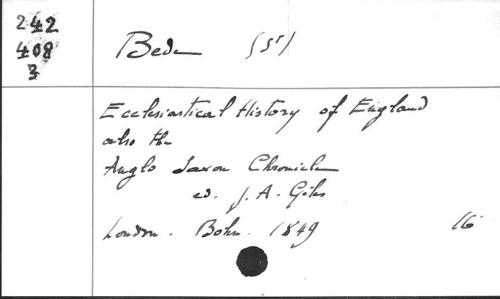 242
408
3
Bede (St)
Ecclesiastical History of England
also the
Anglo Saxon Chronicle
ed. J. A. Giles
London. Bohn. 1849 16